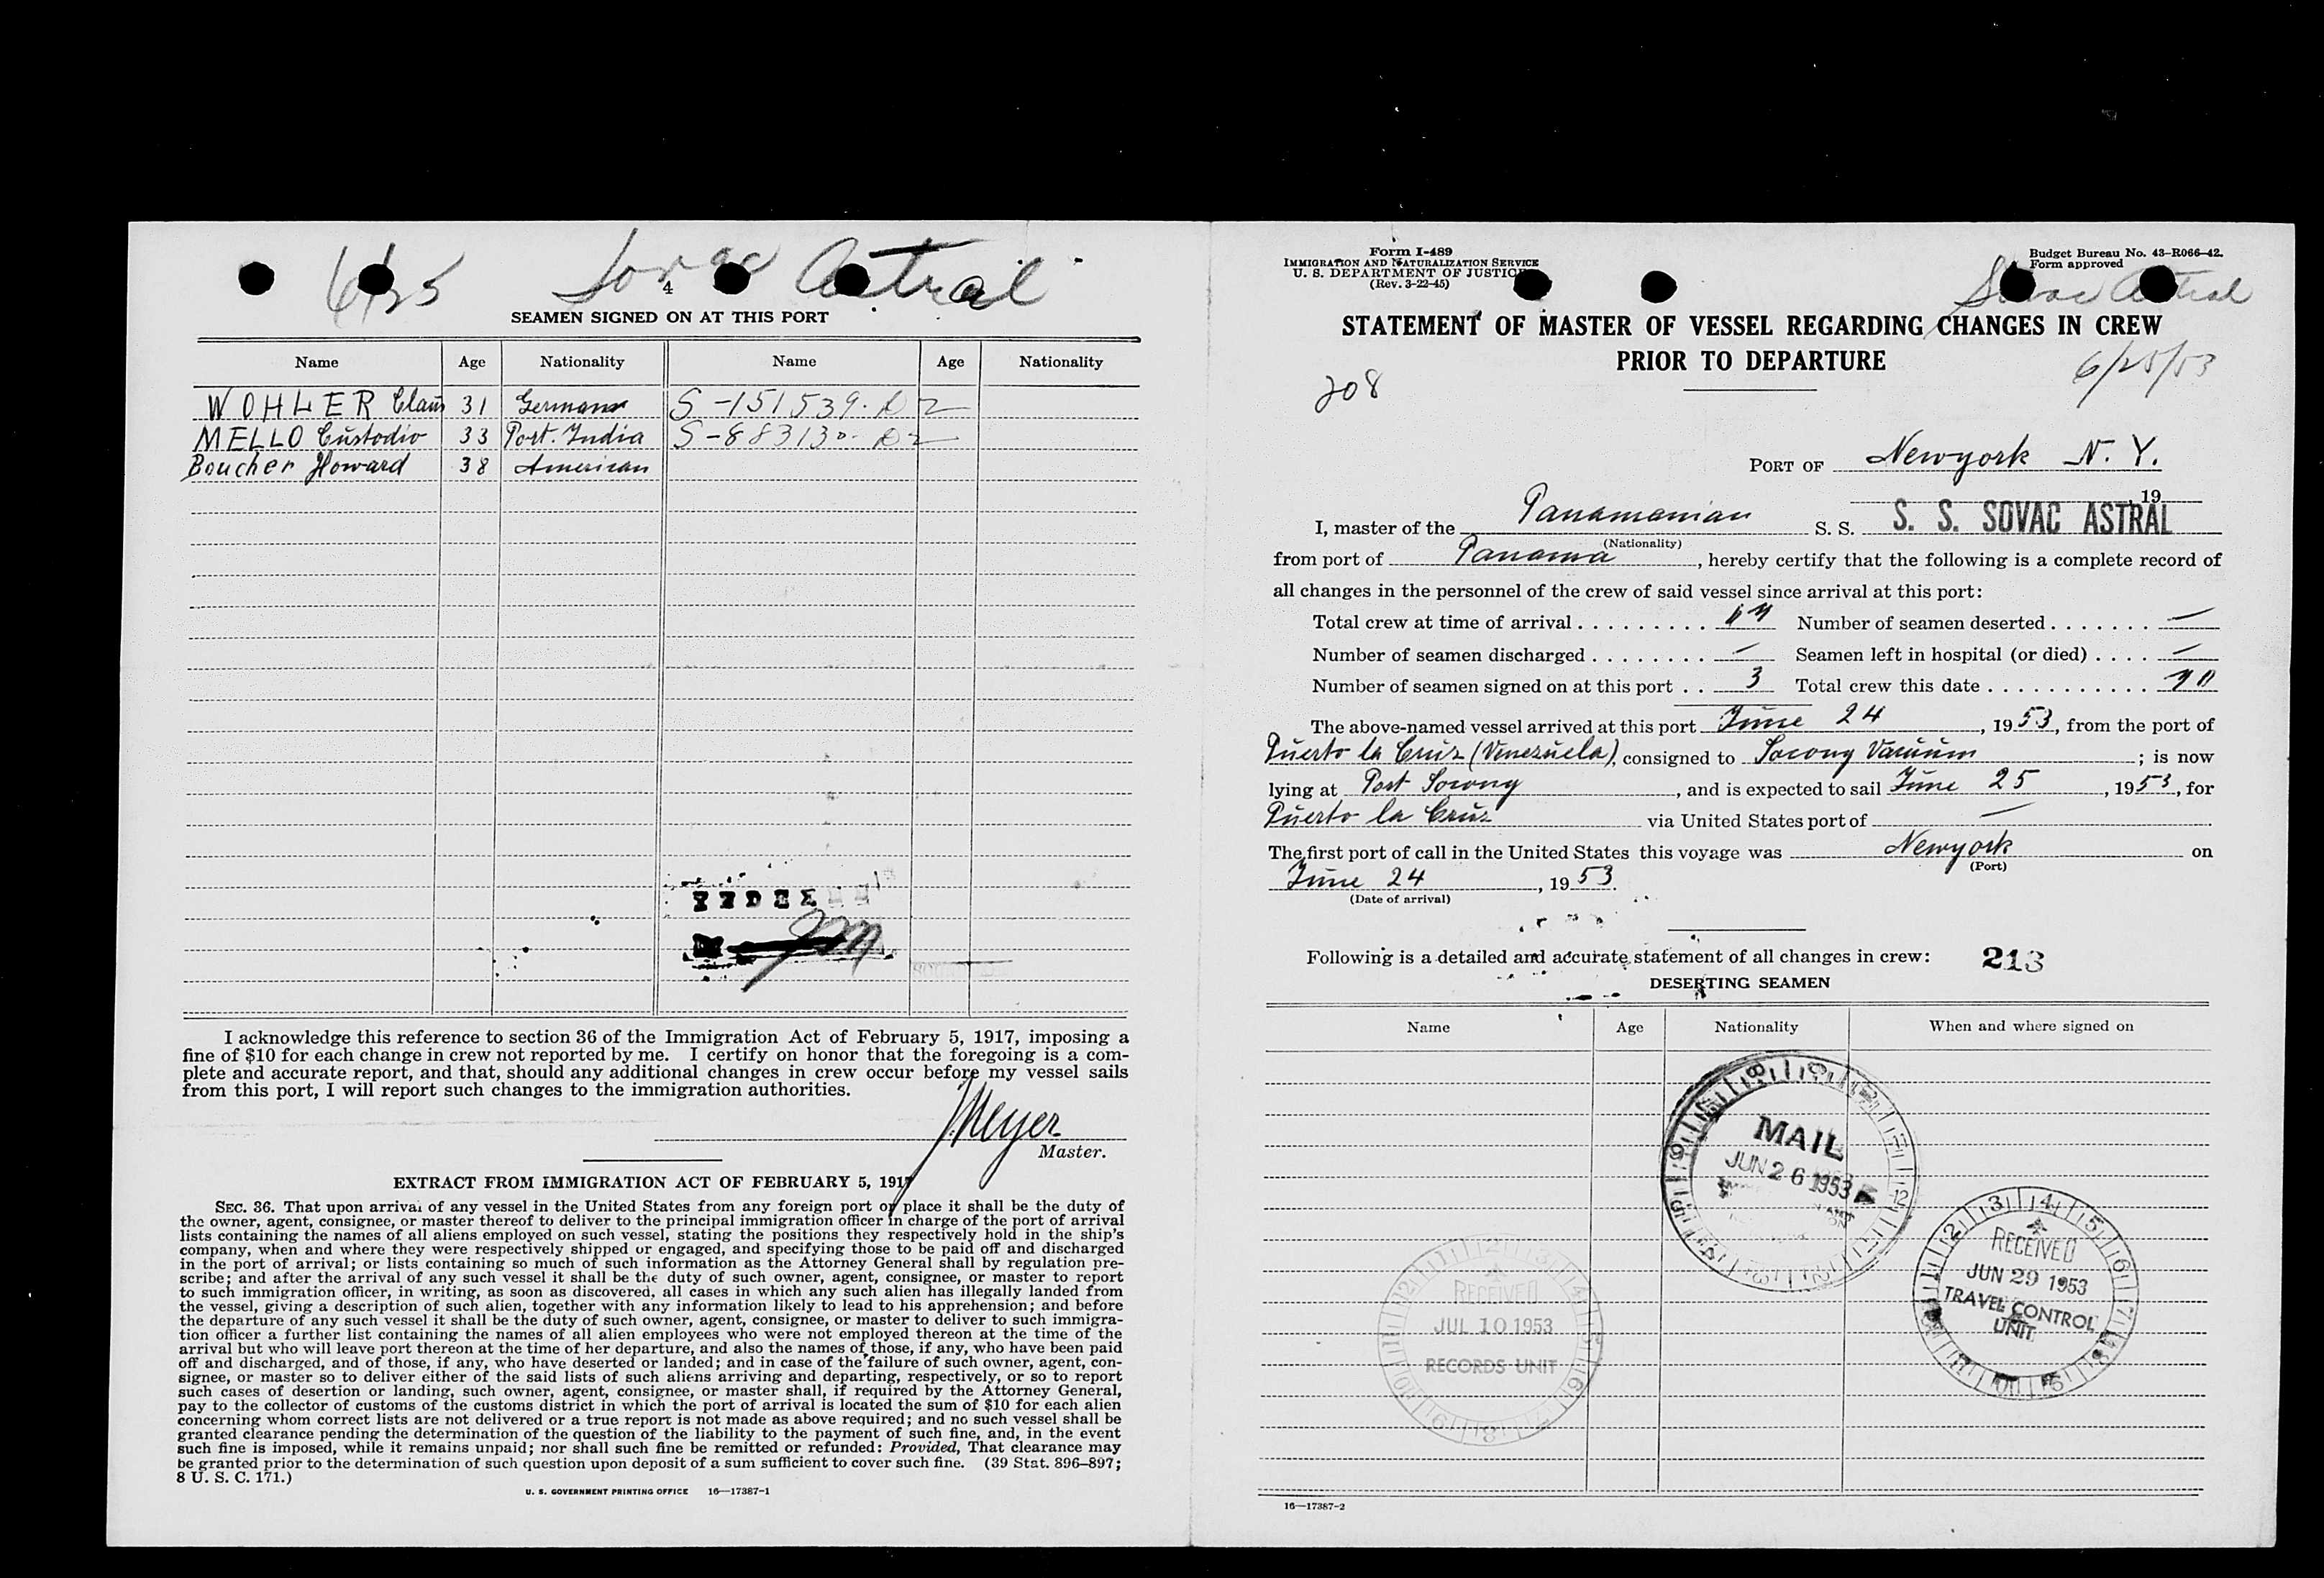 6/25 Sovac Astral
4
SEAMEN SIGNED ON AT THIS PORT
Name Age Nationality Name Age Nationality
WOHLER Claus 31 German S-151539. D2
MELLO Custodio 33 Port. India S-883130. D2
Boucher Howard 38 American
I acknowledge this reference to section 36 of the Immigration Act of February 5, 1917, imposing a
fine of $10 for each change in crew not reported by me. I certify on honor that the foregoing is a com-
plete and accurate report, and that, should any additional changes in crew occur before my vessel sails
from this port, I will report such changes to the immigration authorities.
J Meyer
Master.
EXTRACT FROM IMMIGRATION ACT OF FEBRUARY 5, 1917
SEC. 36. That upon arrival of any vessel in the United States from any foreign port or place it shall be the duty of
the owner, agent, consignee, or master thereof to deliver to the principal immigration officer in charge of the port of arrival
lists containing the names of all aliens employed on such vessel, stating the positions they respectively hold in the ship's
company, when and where they were respectively shipped or engaged, and specifying those to be paid off and discharged
in the port of arrival; or lists containing so much of such information as the Attorney General shall by regulation pre-
scribe; and after the arrival of any such vessel it shall be the duty of such owner, agent, consignee, or master to report
to such immigration officer, in writing, as soon as discovered, all cases in which any such alien has illegally landed from
the vessel, giving a description of such alien, together with any information likely to lead to his apprehension; and before
the departure of any such vessel it shall be the duty of such owner, agent, consignee, or master to deliver to such immigra-
tion officer a further list containing the names of all alien employees who were not employed thereon at the time of the
arrival but who will leave port thereon at the time of her departure, and also the names of those, if any, who have been paid
off and discharged, and of those, if any, who have deserted or landed; and in case of the failure of such owner, agent, con-
signee, or master so to deliver either of the said lists of such aliens arriving and departing, respectively, or so to report
such cases of desertion or landing, such owner, agent, consignee, or master shall, if required by the Attorney General,
pay to the collector of customs of the customs district in which the port of arrival is located the sum of $10 for each alien
concerning whom correct lists are not delivered or a true report is not made as above required; and no such vessel shall be
granted clearance pending the determination of the question of the liability to the payment of such fine, and, in the event
such fine is imposed, while it remains unpaid; nor shall such fine be remitted or refunded: Provided, That clearance may
be granted prior to the determination of such question upon deposit of a sum sufficient to cover such fine. (39 Stat. 896–897;
8 U. S. C. 171.)
U. S. GOVERNMENT PRINTING OFFICE 16—17387-1
Form I-489
IMMIGRATION AND NATURALIZATION SERVICE
U. S. DEPARTMENT OF JUSTICE
(Rev. 3-22-45)
Budget Bureau No. 43-R066-42.
Form approved
Sovac Astral
STATEMENT OF MASTER OF VESSEL REGARDING CHANGES IN CREW
PRIOR TO DEPARTURE
208
6/25/53
PORT OF Newyork N. Y.
, 19
I, master of the Panamanian S. S. S. S. SOVAC ASTRAL
(Nationality)
from port of Panama, hereby certify that the following is a complete record of
all changes in the personnel of the crew of said vessel since arrival at this port:
Total crew at time of arrival Number of seamen deserted —
Number of seamen discharged — Seamen left in hospital (or died) —
Number of seamen signed on at this port 3 Total crew this date
The above-named vessel arrived at this port June 24, 1953, from the port of
Puerto la Cruz (Venezuela), consigned to Socony Vacuum; is now
lying at Port Socony, and is expected to sail June 25, 1953, for
Puerto la Cruz via United States port of —
The first port of call in the United States this voyage was Newyork on
(Port)
June 24, 1953.
(Date of arrival)
Following is a detailed and accurate statement of all changes in crew: 213
DESERTING SEAMEN
Name Age Nationality When and where signed on
MAIL
JUN 26 1953
RECEIVED
JUN 29 1953
TRAVEL CONTROL
UNIT
RECEIVED
JUL 10 1953
RECORDS UNIT
16—17387-2